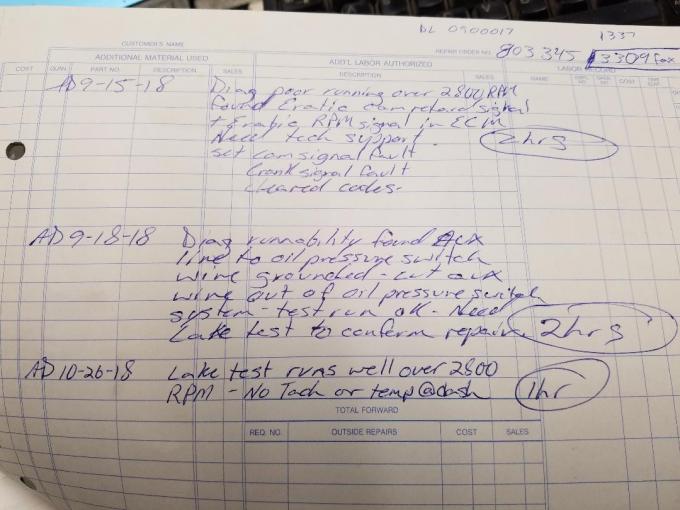 DL 0900017
1337
CUSTOMER'S NAME
REPAIR ORDER NO. 803345 3309 fax
ADDITIONAL MATERIAL USED
ADD'L LABOR AUTHORIZED
LABOR RECORD
COST QUAN. PART NO. DESCRIPTION SALES DESCRIPTION SALES NAME COST
AD 9-15-18 Diag poor running over 2800 RPM
found Eratic cam retard signal
+ Eratic RPM signal in ECM
Need tech support. 2hrs
set cam signal fault
Crank signal fault
cleared codes-
AD 9-18-18 Diag runnability found Aux
line to oil pressure switch
wire grounded - cut aux
wire out of oil pressure switch
system - test run ok - Need
Lake test to conferm repairs 2hrs
AD 10-26-18 Lake test runs well over 2800
RPM - No Tach or temp @ dash 1hr
TOTAL FORWARD
REQ. NO. OUTSIDE REPAIRS COST SALES